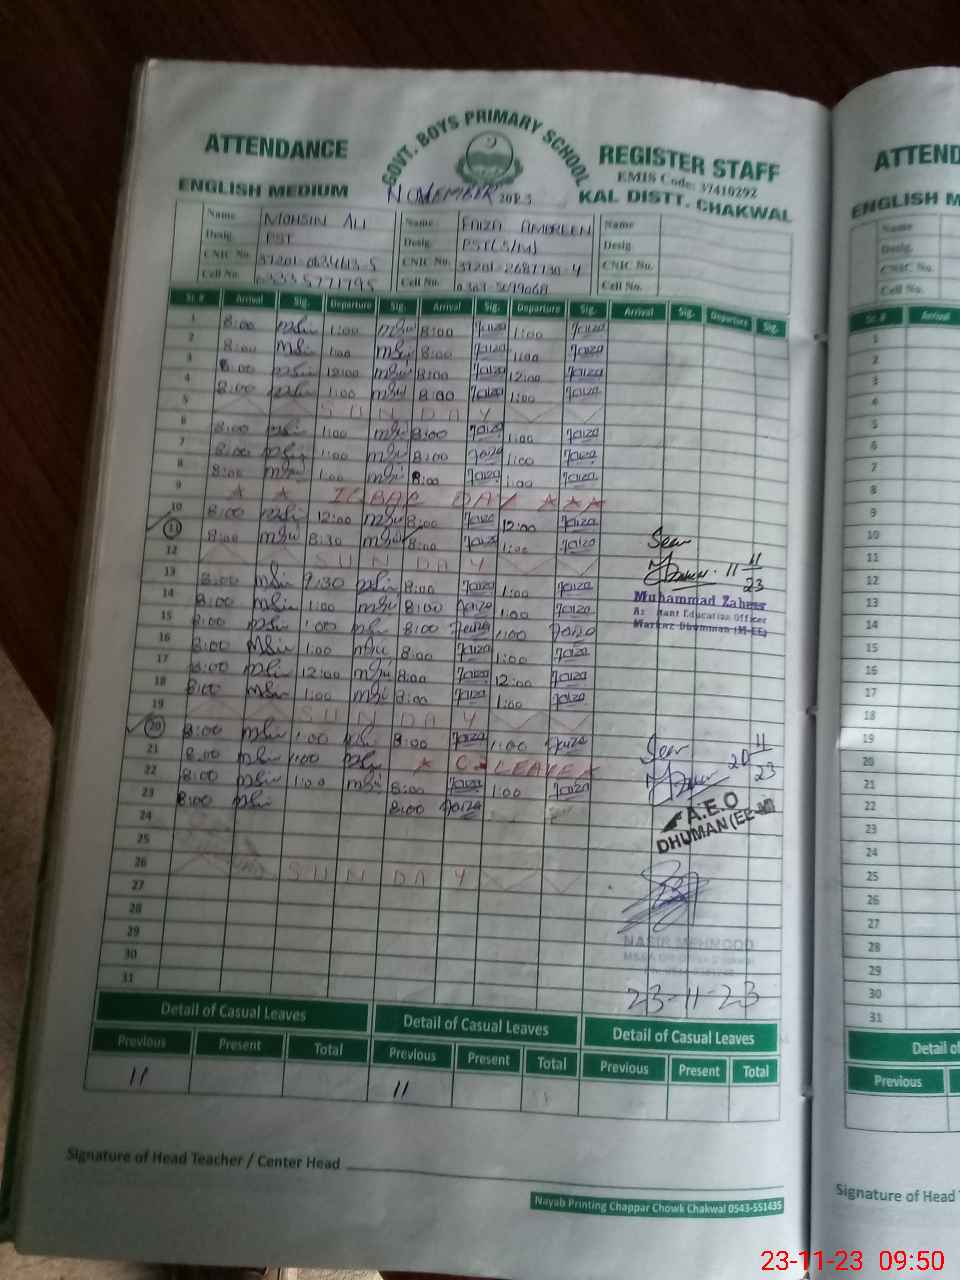 GOVT. BOYS PRIMARY SCHOOL
ATTENDANCE
REGISTER STAFF
EMIS Code: 37410292
ENGLISH MEDIUM
NOVEMBER 2023
KAL DISTT. CHAKWAL
Name MOHSIN ALI Name FAIZA AMBREEN Name
Desig. PST Desig. PST(S/M) Desig.
CNIC No. CNIC No. CNIC No.
Cell No. Cell No. Cell No.
Sr. # Arrival Sig. Departure Sig. Arrival Sig. Departure Sig. Arrival Sig. Departure Sig.
1 8:00 1:00 8:00 Faiza 1:00 Faiza
2 8:00 1:00 8:00 Faiza 1:00 Faiza
3 8:00 12:00 8:00 Faiza 12:00 Faiza
4 8:00 1:00 8:00 Faiza 1:00 Faiza
5 SUNDAY
6 8:00 1:00 8:00 Faiza 1:00 Faiza
7 8:00 1:00 8:00 Faiza 1:00 Faiza
8 8:00 1:00 8:00 Faiza 1:00 Faiza
9 IQBAL DAY
10 8:00 12:00 8:00 Faiza 12:00 Faiza
11 8:00 8:30 8:00 Faiza 1:00 Faiza
12 SUNDAY
13 8:00 9:30 8:00 Faiza 1:00 Faiza
14 8:00 1:00 8:00 Faiza 1:00 Faiza
15 8:00 1:00 8:00 Faiza 1:00 Faiza
16 8:00 1:00 8:00 Faiza 1:00 Faiza
17 8:00 12:00 8:00 Faiza 12:00 Faiza
18 8:00 1:00 8:00 Faiza 1:00 Faiza
19 SUNDAY
20 8:00 1:00 8:00 Faiza 1:00 Faiza
21 8:00 1:00 C-LEAVE
22 8:00 1:00 8:00 Faiza 1:00 Faiza
23 8:00 8:00 Faiza
24
25
26 SUNDAY
27
28
29
30
31
Seen
11 11/23
Muhammad Zaheer
Assistant Education Officer
Markaz Dhumman (M-EE)
Seen
20 11/23
A.E.O
DHUMAN (EE-M)
NASIR MEHMOOD
23-11-23
Detail of Casual Leaves Detail of Casual Leaves Detail of Casual Leaves
Previous Present Total Previous Present Total Previous Present Total
11 11
Signature of Head Teacher / Center Head
Nayab Printing Chappar Chowk Chakwal 0543-551435
ATTEND
ENGLISH M
Name
Desig.
CNIC No.
Cell No.
Sr. # Arrival
1
2
3
4
5
6
7
8
9
10
11
12
13
14
15
16
17
18
19
20
21
22
23
24
25
26
27
28
29
30
31
Detail of
Previous
Signature of Head
23-11-23 09:50